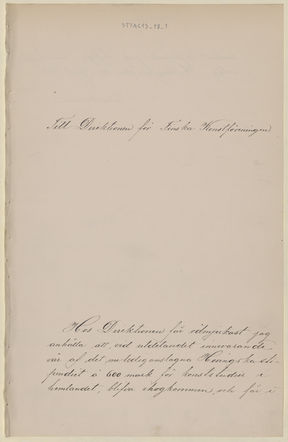 Till Direktionen för Finska Konstföreningen
Hos Direktionen får ödmjukast jag
anhålla att vid utdelandet innevarande
vår af det lediganslagna Hoving'ska sti-
pendiet à 600 mark för konststudier i
hemlandet, blifva ihogkommen, och får i